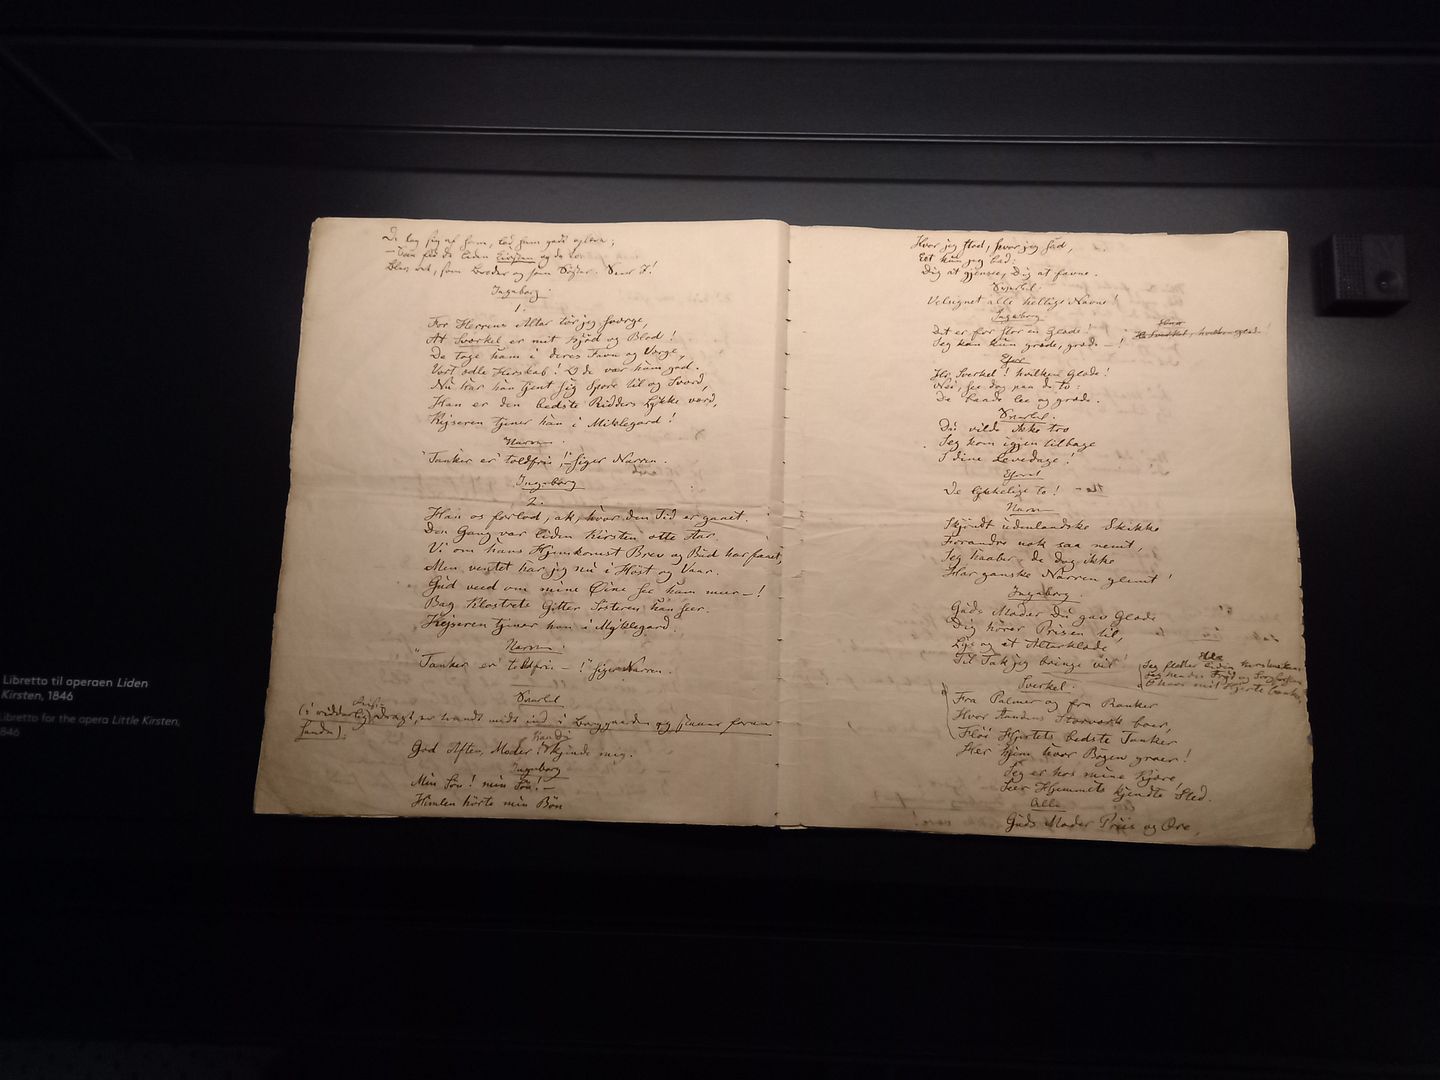 Libretto til operaen Liden
Kirsten, 1846
Libretto for the opera Little Kirsten,
846
De tog sig af ham, lod ham godt oplære;
liden Kirsten og de
som Broder og som Søster
Ingeborg.
1.
For Herrens Altar tør jeg sværge,
At Sverkel er mit Kjød og Blod!
De toge ham i deres Favn og Værge,
Vort ædle Herskab! O de var ham god.
Nu har han tjent sig Spore til og Sværd,
Han er den bedste Ridders Lykke værd,
Keiseren tjener han i Miklegard!
Narren.
"Tanker er toldfrie!" siger Narren.
Ingeborg
2.
Han os forlod, ak, hvor den Tid er gaaet.
Den Gang var liden Kirsten otte Aar.
Vi om hans Hjemkomst Brev og Bud har faaet,
Men ventet har jeg nu i Høst og Vaar.
Gud veed om mine Øine see ham meer—!
Bag Klostrets Gitter Søsteren han seer.
Kejseren tjener han i Myklegard.
Narren.
"Tanker er toldfrie—!" siger Narren.
Sverkel
(i ridderlig Dragt, er traadt ind i Borggaarden og
God Aften, Moder! kjende mig.
Ingeborg
Min Søn! min Søn!—
Himlen hørte min Bøn
Hvor jeg stod, hvor jeg sad,
Eet kun jeg bad:
Dig at gjensee, Dig at favne.
Sverkel.
Velsignet alle hellige Navne!
Ingeborg
Det er for stor en Glæde!
Jeg kan kun græde, græde—!
Hr. Sverkel! hvilken Glæde!
Nei, see dog paa de to:
De baade lee og græde.
Sverkel.
Du vilde ikke tro
Jeg kom igjen tilbage
I dine Levedage!
De lykkelige to!
Narren
Skjøndt udenlandske Skikke
Forandre nok saa nemt,
Jeg haaber, de dog ikke
Har ganske Narren glemt!
Ingeborg.
Guds Moder Du gav Glæde
Dig hører Prisen til,
Lys og et Alterklæde
Til Tak jeg bringe vil!
Sverkel.
Fra Palmer og fra Ranker
Hvor Aandens Storværk boer,
Fløi Hjertets bedste Tanker
Her hjem hvor Bøgen groer!
Jeg er hos mine Kjære,
Seer Hjemmets kjendte Sted.
Alle
Guds Moder Priis og Ære,